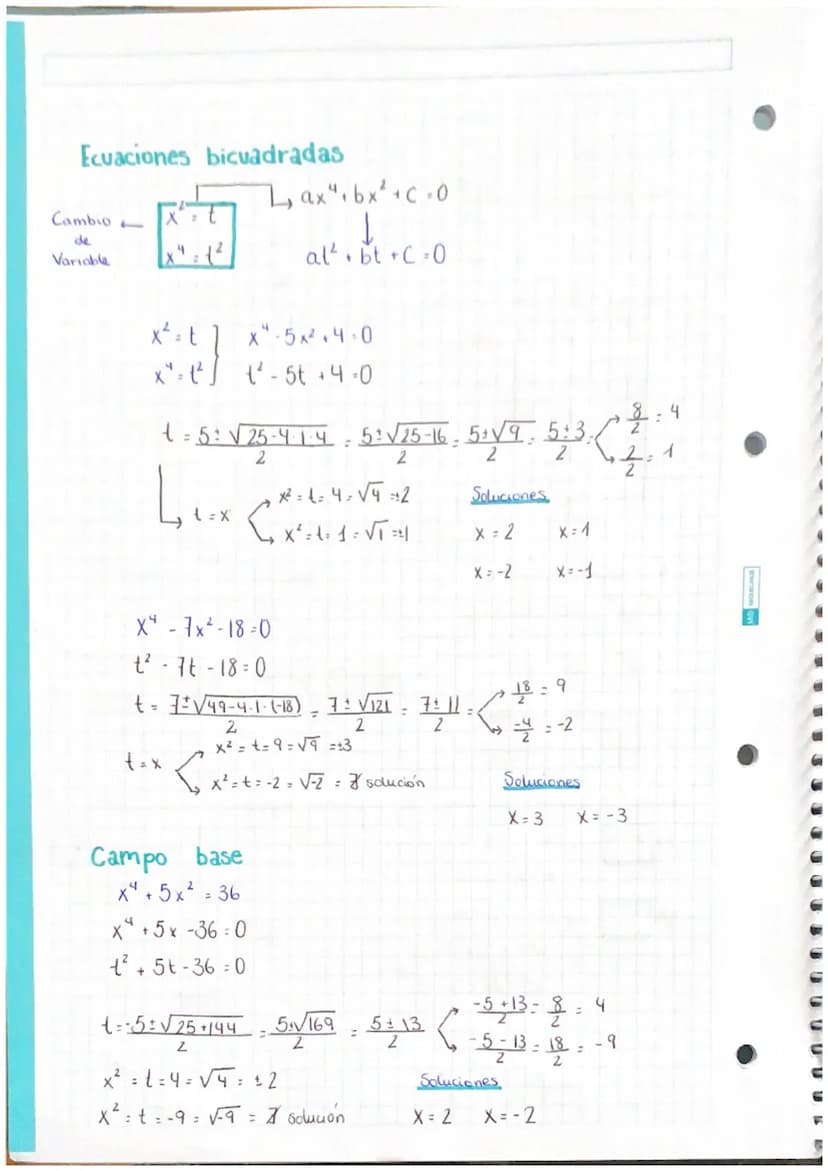 Ecuaciones bicuadradas
ax⁴ + bx² + C = 0
Cambio de Variable
x² = t
x⁴ = t²
at² + bt + C = 0
x² = t } x⁴ - 5x² + 4 = 0
x⁴ = t² } t² - 5t + 4 = 0
t = 5 ± √25-4·1·4 / 2 = 5 ± √25-16 / 2 = 5 ± √9 / 2 = 5 ± 3 / 2 = 8/2 = 4
2/2 = 1
t = x
x² = t = 4 = √4 = ±2
x² = t = 1 = √1 = ±1
Soluciones
x = 2 x = 1
x = -2 x = -1
x⁴ - 7x² - 18 = 0
t² - 7t - 18 = 0
t = 7 ± √49-4·1·(-18) / 2 = 7 ± √121 / 2 = 7 ± 11 / 2 = 18/2 = 9
-4/2 = -2
t = x
x² = t = 9 = √9 = ±3
x² = t = -2 = √-2 = ∄ solución
Soluciones
x = 3 x = -3
Campo base
x⁴ + 5x² = 36
x⁴ + 5x - 36 = 0
t² + 5t - 36 = 0
t = -5 ± √25+144 / 2 = 5 ± √169 / 2 = 5 ± 13 / 2
-5 + 13 / 2 = 8/2 = 4
-5 - 13 / 2 = 18/2 = -9
x² = t = 4 = √4 = ±2
x² = t = -9 = √-9 = ∄ solución
Soluciones
x = 2 x = -2